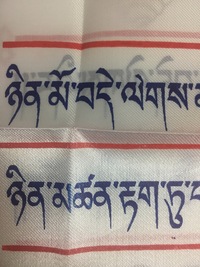 ཉིན་མོ་བདེ་ལེགས་
ཉིན་མཚན་རྟག་ཏུ་